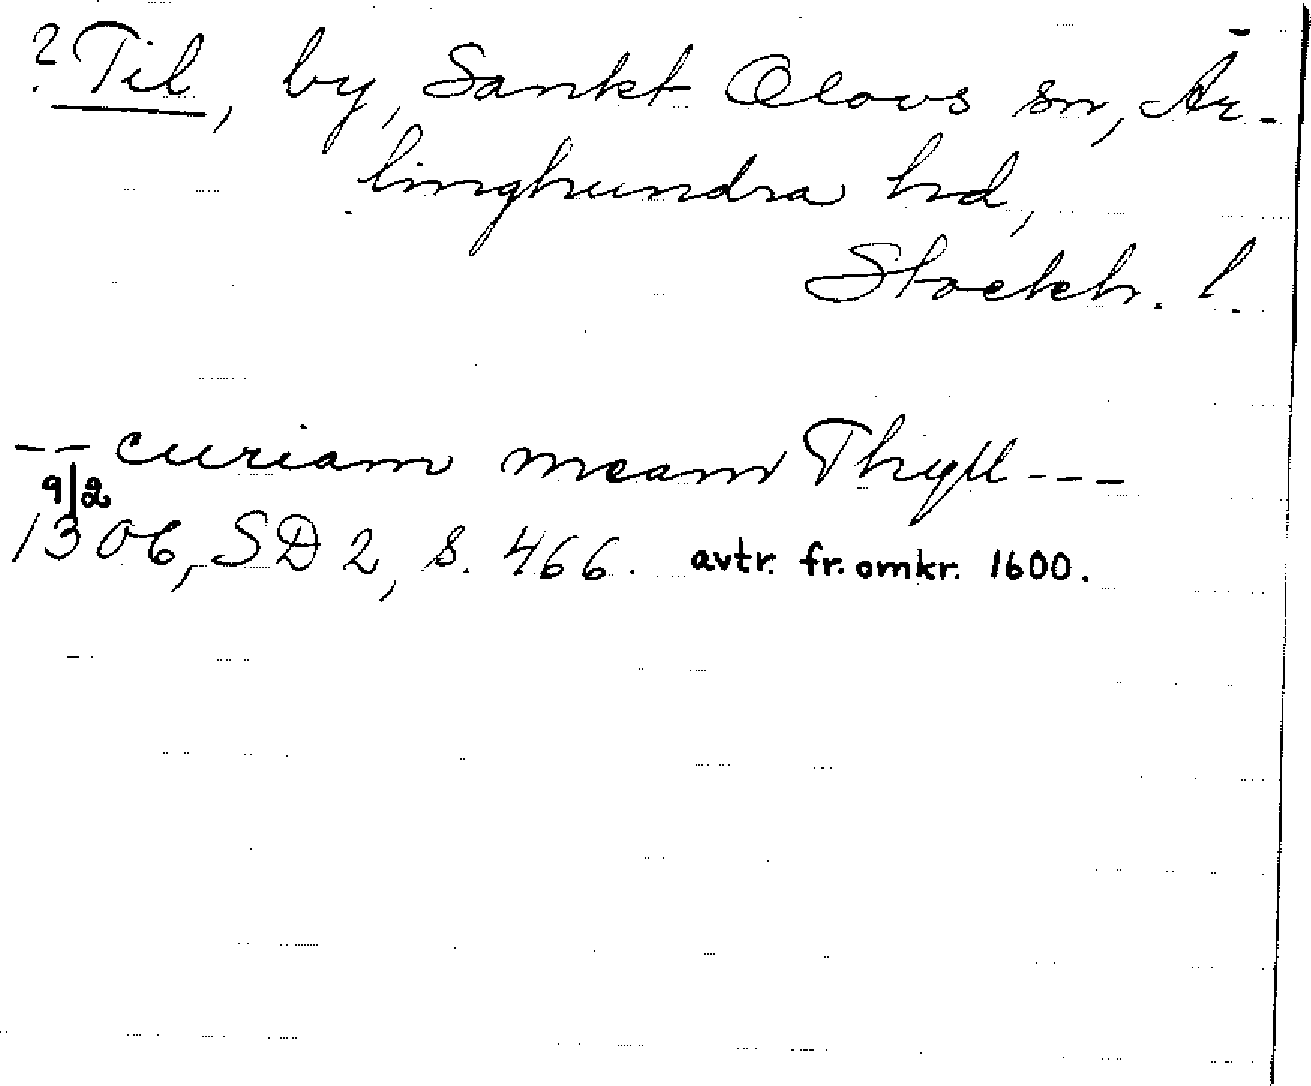 ? Til, by, Sankt Olovs sn, Är-
linghundra hd,
Stockh. l.
-- curiam meam Thyll ---
9/2
1306, SD 2, s. 466. avtr. fr. omkr. 1600.